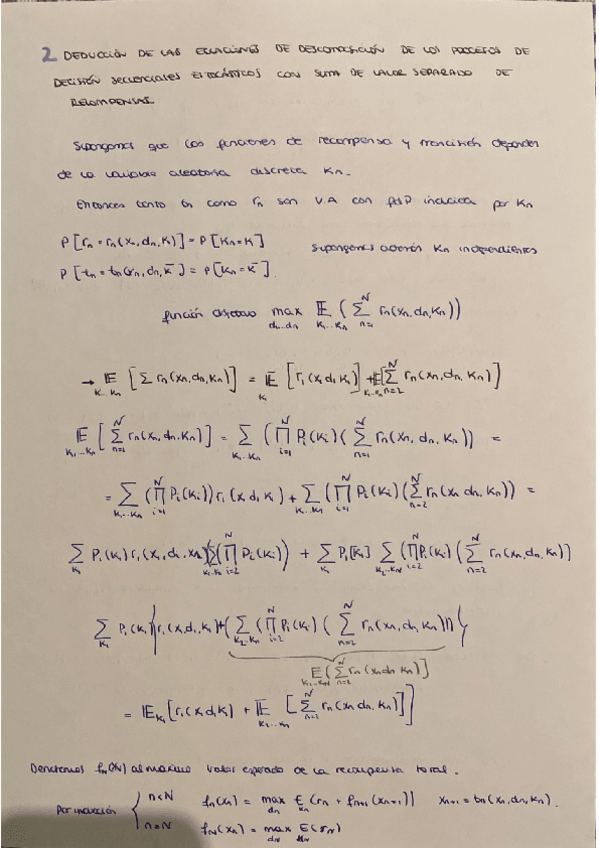 2 DEDUCCIÓN DE LAS ECUACIONES DE DESCOMPOSICIÓN DE LOS PROCESOS DE
DECISIÓN SECUENCIALES ESTOCÁSTICOS CON SUMA DE VALOR SEPARADO DE
RECOMPENSAS.
Supongamos que las funciones de recompensa y transición dependen
de la variable aleatoria discreta Kn.
Entonces tanto tn como rn son V.A con inducida por Kn
P[rn = rn(xn, dn, K)] = P[Kn = K] Supongamos además Kn independientes
P[tn = tn(xn, dn, K̄)] = P[Kn = K̄].
función objetivo max_{d1..dn} E_{K1...Kn} (∑_{n=1}^{N} rn(xn, dn, Kn))
→ E_{K1..Kn} [∑ rn(xn, dn, Kn)] = E_{K1} [r1(x1, d1, K1)] + E_{K1..Kn} [∑_{n=2}^{N} rn(xn, dn, Kn)]
E_{K1...Kn} [∑_{n=1}^{N} rn(xn, dn, Kn)] = ∑_{K1..Kn} (∏_{i=1}^{N} Pi(Ki) (∑_{n=1}^{N} rn(xn, dn, Kn)) =
= ∑_{K1..Kn} (∏_{i=1}^{N} Pi(Ki)) r1(x, d, K) + ∑_{K1..Kn} (∏_{i=1}^{N} Pi(Ki) (∑_{n=2}^{N} rn(xn, dn, Kn)) =
∑_{K1} P1(K1) r1(x1, d1, K1) (∑_{K1..Kn} (∏_{i=2}^{N} Pi(Ki)) + ∑_{K1} P1[K1] ∑_{K2..KN} (∏_{i=2}^{N} Pi(Ki) (∑_{n=2}^{N} rn(xn, dn, Kn))
∑_{K1} P1(K1) {r1(x, d1, K1) + (∑_{K2..Kn} (∏_{i=2}^{N} Pi(Ki) (∑_{n=2}^{N} rn(xn, dn, Kn)))}
E_{K2...KN} (∑_{n=2}^{N} rn(xn dn Kn)]
= E_{K1} [r1(x, d, K) + E_{K2...Kn} [∑_{n=2}^{N} rn(xn dn, Kn)]]
Denotemos fn(xN) al máximo valor esperado de la recompensa total.
Por inducción { n<N fn(xn) = max_{dn} E_{Kn} (rn + fn+1(xn+1)) xn+1 = tn(xn, dn, Kn).
n=N fN(xn) = max_{dN} E_{KN} (rN)